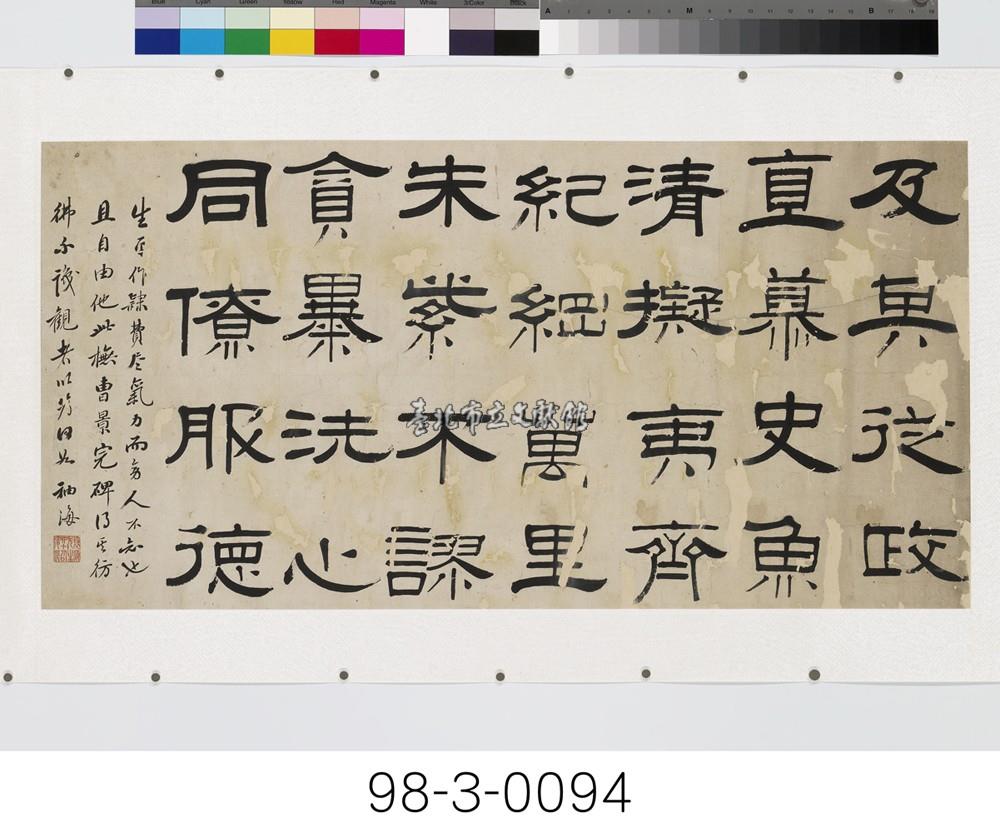 Blue Cyan Green Yellow Red Magenta White 3/Color Black
A 1 2 3 4 5 6 M 8 9 10 11 12 13 14 15 B 17 18 19
及其從政
直慕史魚
清擬夷齊
紀綱萬里
朱紫不謬
貪暴洗心
同僚服德
生平作隸費尽氣力而旁人不知也
且自由他此橅曹景完碑得其彷
彿不識觀者以為何如 袖海
臺北市立文獻館
98-3-0094